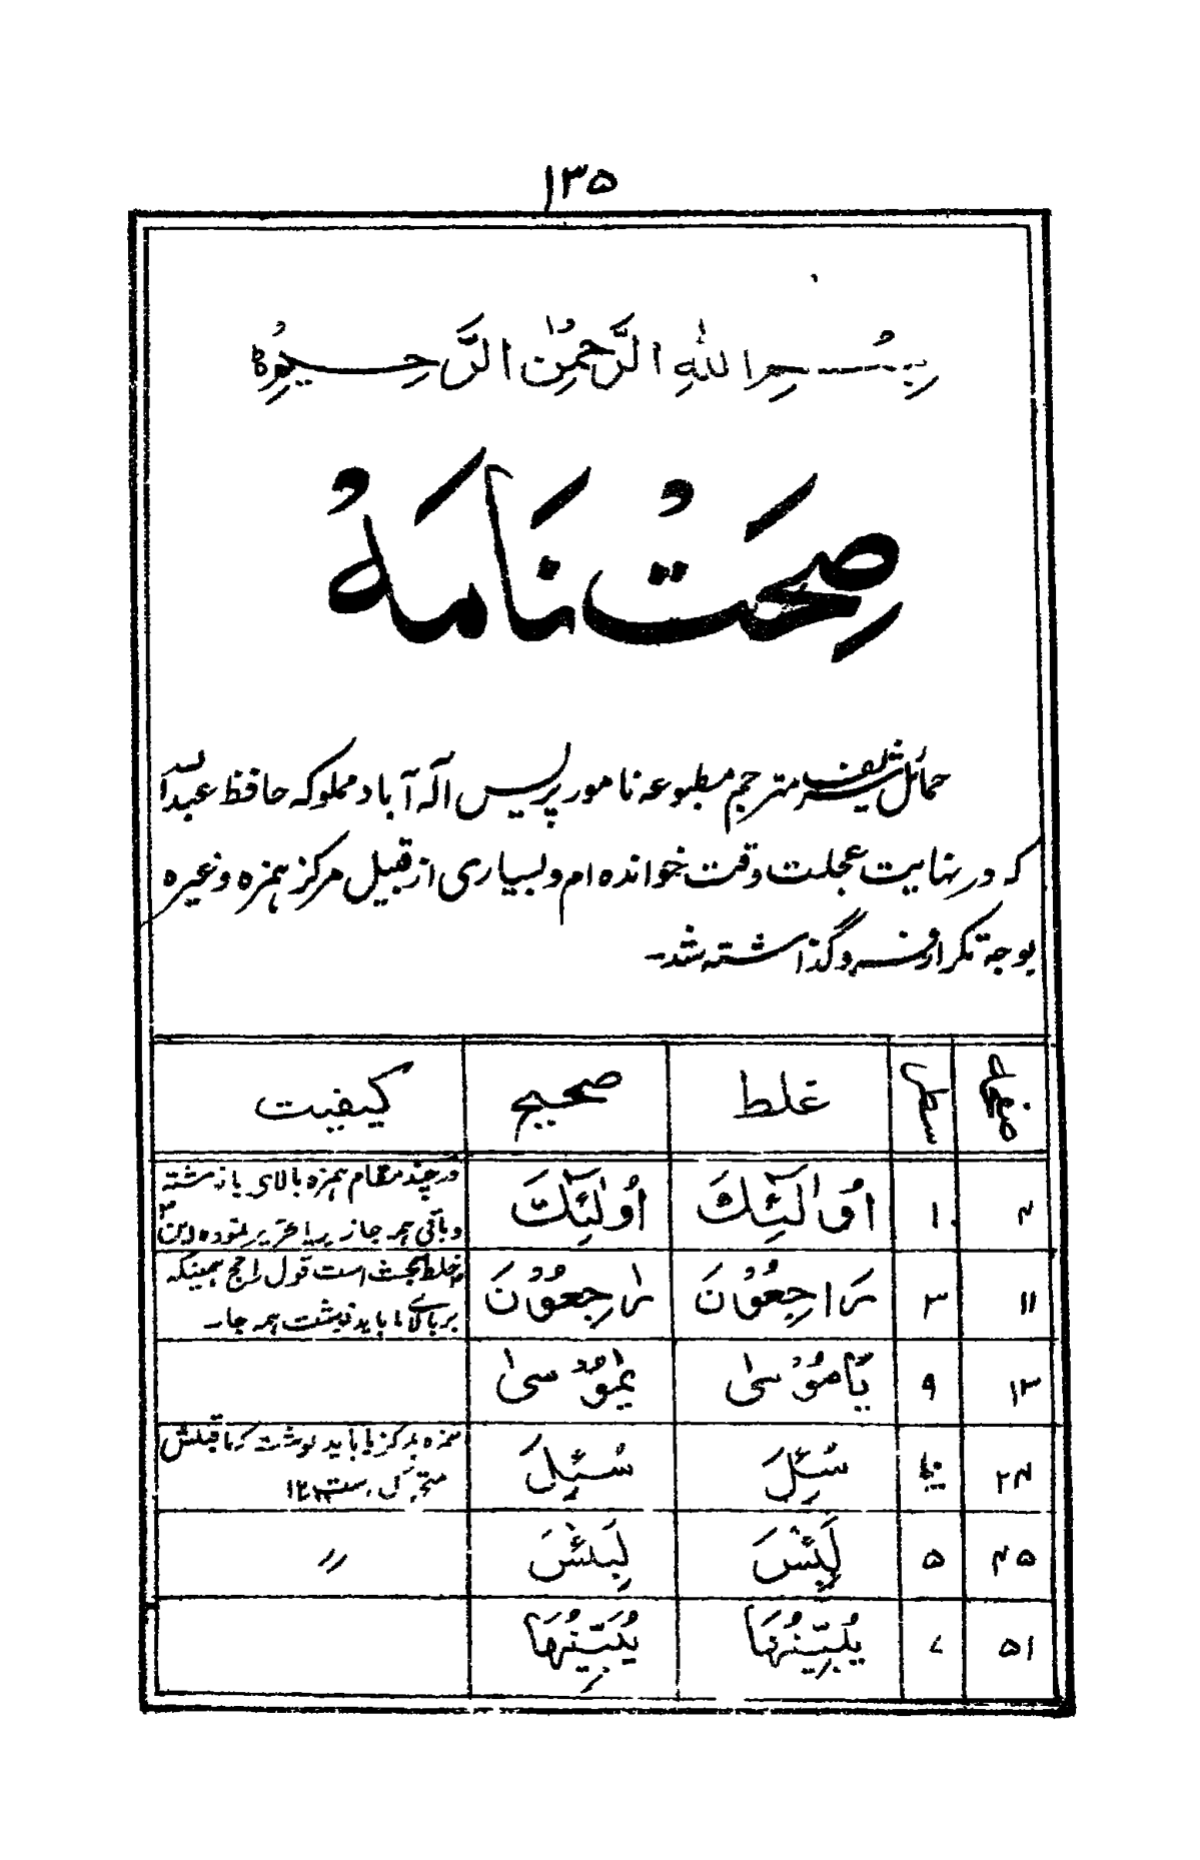 ۱۳۵
بِسْمِ اللّٰهِ الرَّحْمٰنِ الرَّحِيْمِ
صِحَتْ نَامَهْ
حمائل شریف مترجم مطبوعه نامور پریس الٰه آباد مملوکه حافظ عبدالله
که در نهایت عجلت وقت خوانده ام و بسیاری از قبیل مرکز همزه و غیره
بوجه تکرار فروگذاشته شد۔
صفحات سطر غلط صحیح کیفیت
۴ ۱۰ اُوْاٰلَئِكَ اُولٰئِكَ در چند مقام همزه بالای یا نوشته
و باقی همه جا زیر یا تحریر نموده این
۱۱ ۳ رَاجِعُوْنَ رٰجِعُوْنَ خلط بحث است قول راجح همینکه
بر بالای یا باید نوشت همه جا۔
۱۳ ۹ يَامُوْسٰى يٰمُوْسٰى
۲۴ سُئِلَ سُئِلَ همزه بر مرکز یا باید نوشت که ما قبلش
متحرک است ۱۲
۴۵ ۵ لَبِئْسَ لَبِئْسَ "
۵۱ ۷ يُبَيِّنُهَا يُبَيِّنُهَا